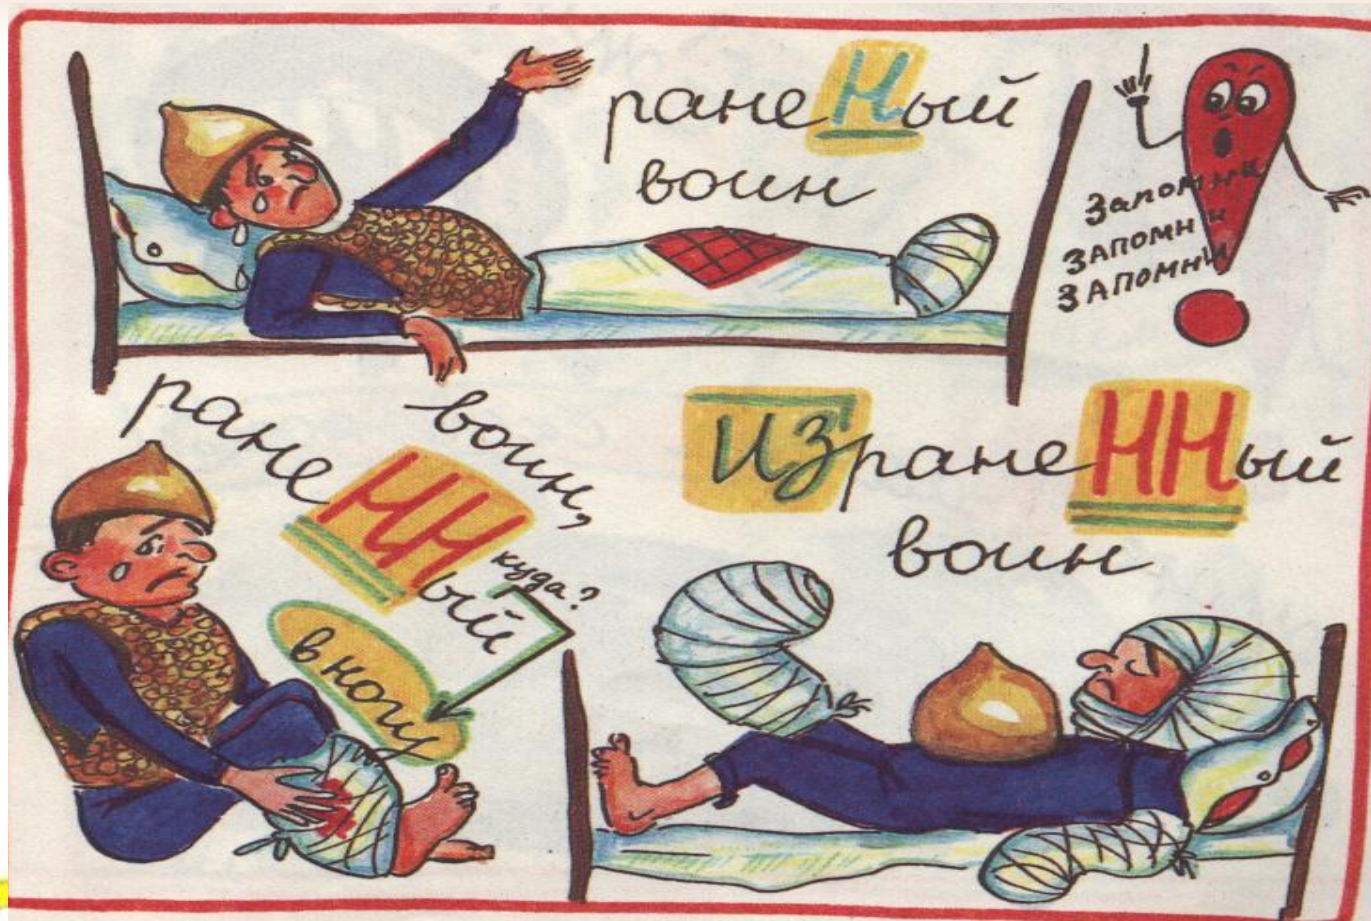 ранеНый
воин
Запомни
ЗАПОМНИ
ЗАПОМНИ
ранеННый
воин,
куда?
в ногу
ИЗранеННый
воин